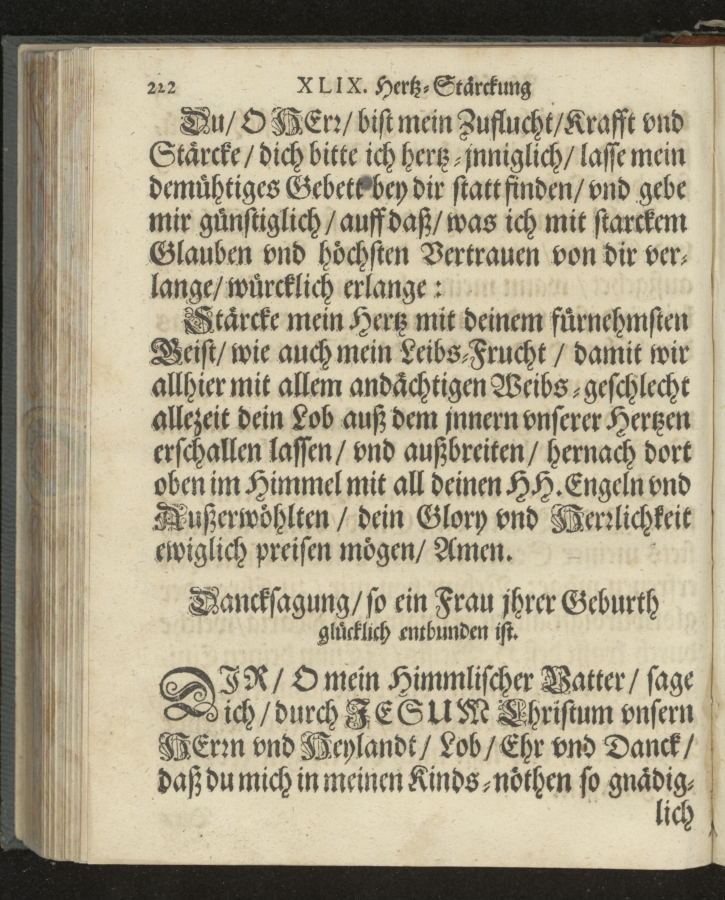 222 XLIX. Hertz-Stärckung
Du/ O HErr/ bist mein Zuflucht/Krafft vnd
Stärcke/ dich bitte ich hertz-jnniglich/ lasse mein
demühtiges Gebett bey dir statt finden/ vnd gebe
mir günstiglich/ auff daß/ was ich mit starckem
Glauben vnd höchsten Vertrauen von dir ver-
lange/ würcklich erlange:
Stärcke mein Hertz mit deinem fürnehmsten
Geist/ wie auch mein Leibs-Frucht/ damit wir
allhier mit allem andächtigen Weibs-geschlecht
allezeit dein Lob auß dem jnnern vnserer Hertzen
erschallen lassen/ vnd außbreiten/ hernach dort
oben im Himmel mit all deinen HH. Engeln vnd
Außerwöhlten/ dein Glory vnd Herrlichkeit
ewiglich preisen mögen/ Amen.
Dancksagung/ so ein Frau jhrer Geburth
glücklich entbunden ist.
DIR/ O mein Himmlischer Vatter/ sage
ich/ durch JESUM Christum vnsern
HErrn vnd Heylandt/ Lob/ Ehr vnd Danck/
daß du mich in meinen Kinds-nöthen so gnädig-
lich